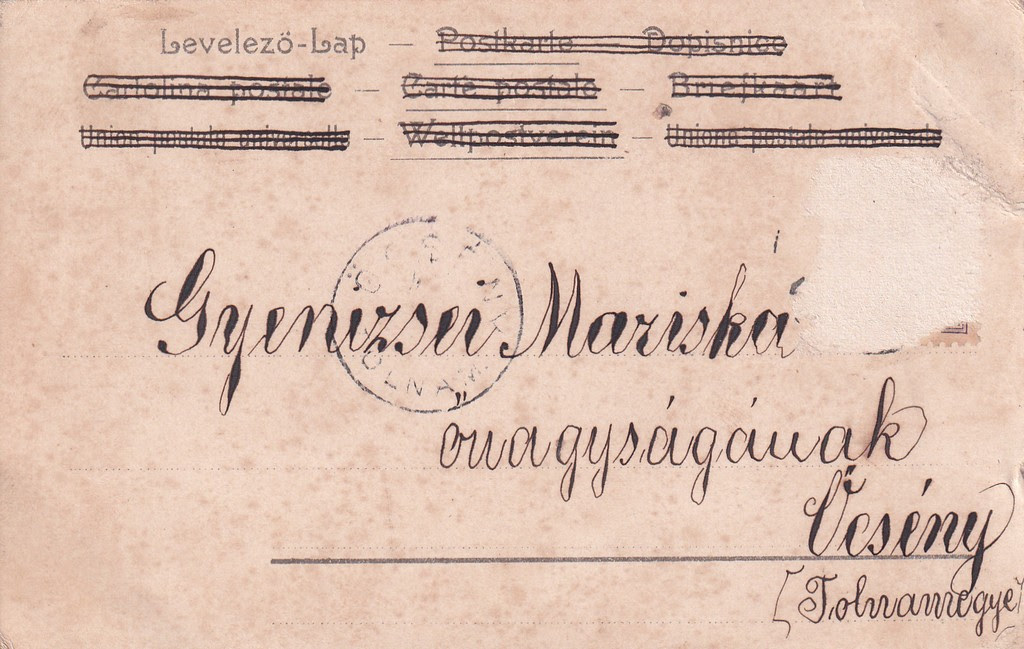 Levelező-Lap — Postkarte Dopisnice
Cartolina postale — Carte postale — Briefkaart
Union postale universelle — Weltpostverein — Unione postale universale
Gyenizsei Mariská
őnagyságának
Őcsény
[Tolnamegye]